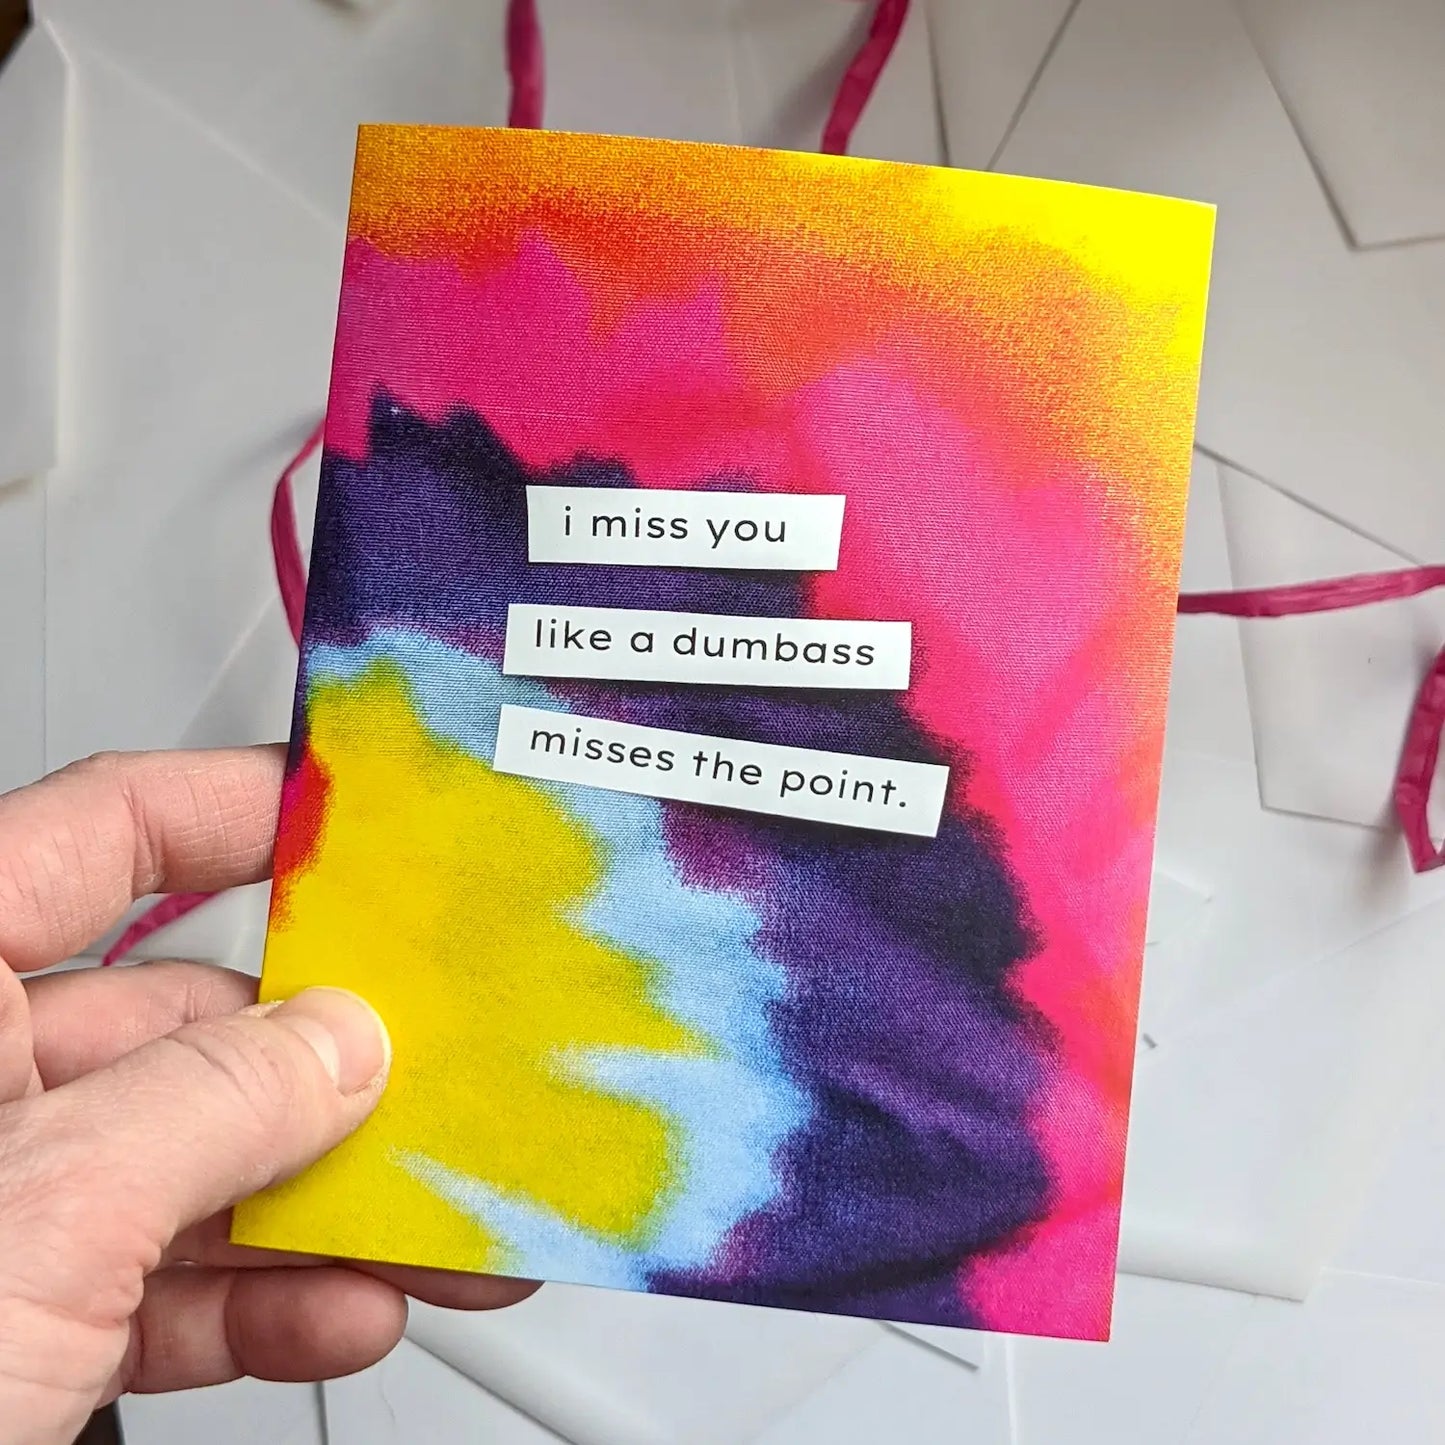 i miss you
like a dumbass
misses the point.